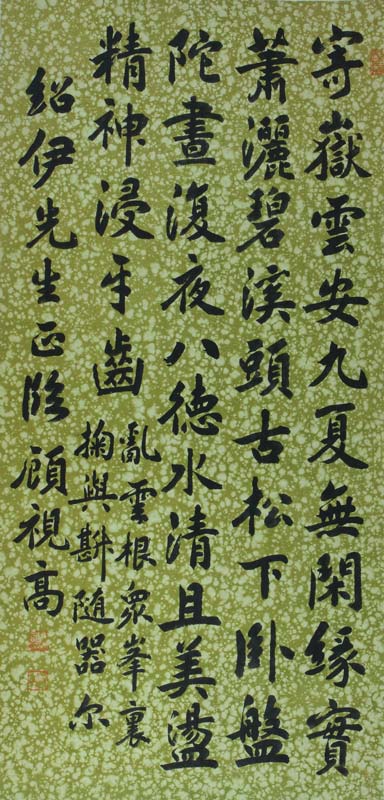 寄嶽雲安九夏無閑緣實
蕭灑碧溪頭古松下卧盤
陀晝復夜八德水清且美盪
精神浸牙齒
亂雲根眾峯裏
掬與斟隨器尔
紹伊先生正臨顧視高